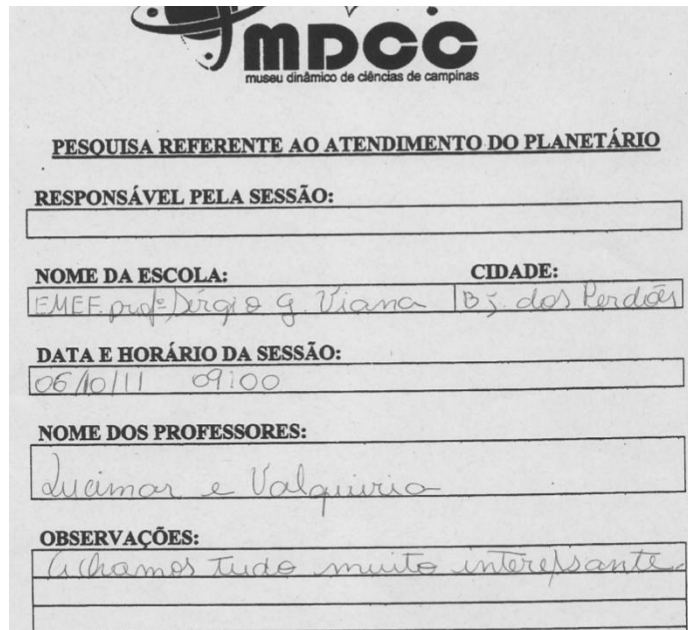 MDCC
museu dinâmico de ciências de campinas
PESQUISA REFERENTE AO ATENDIMENTO DO PLANETÁRIO
RESPONSÁVEL PELA SESSÃO:
NOME DA ESCOLA: CIDADE:
EMEF profº Sérgio G. Viana BJ. dos Perdões
DATA E HORÁRIO DA SESSÃO:
06/10/11 09:00
NOME DOS PROFESSORES:
Lucimar e Valquiria
OBSERVAÇÕES:
Achamos tudo muito interessante.